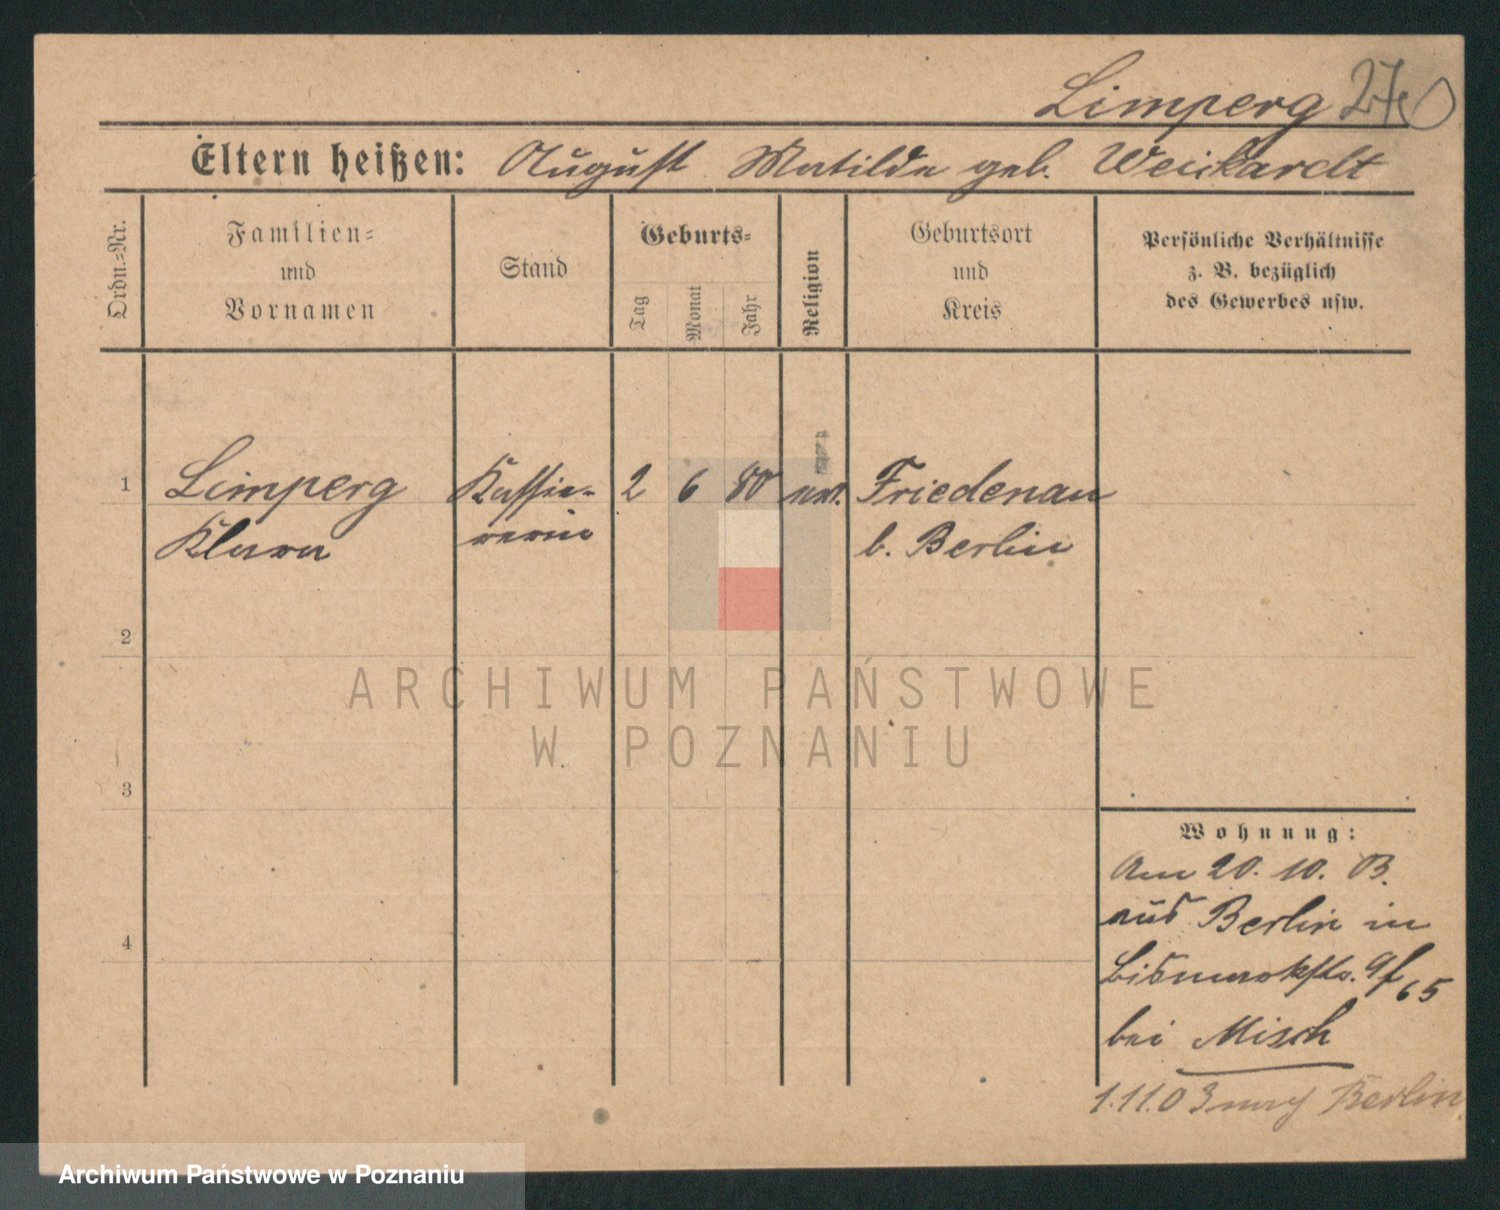 Limperg
Eltern heißen: August Matilde geb. Weickardt
Ordn.=Nr.
Familien=
und
Vornamen
Stand
Geburts=
Tag
Monat
Jahr
Religion
Geburtsort
und
Kreis
Persönliche Verhältnisse
z. B. bezüglich
des Gewerbes usw.
1
Limperg
Klara
Kassie-
rerin
2 6 80
Friedenau
b. Berlin
2
3
4
Wohnung:
Am 20. 10. 03.
aus Berlin in
Bismarckstr. 9
65
bei Misch
1.11.03 nach Berlin
ARCHIWUM PAŃSTWOWE
W POZNANIU
Archiwum Państwowe w Poznaniu